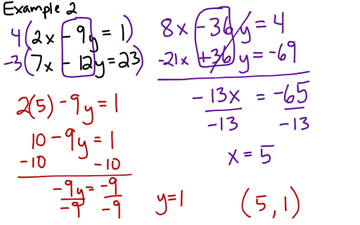 Example 2
4(2x - 9y = 1)
-3(7x - 12y = 23)
8x - 36y = 4
-21x + 36y = -69
-13x = -65
-13 -13
x = 5
2(5) - 9y = 1
10 - 9y = 1
-10 -10
-9y = -9
-9 -9
y = 1
(5, 1)